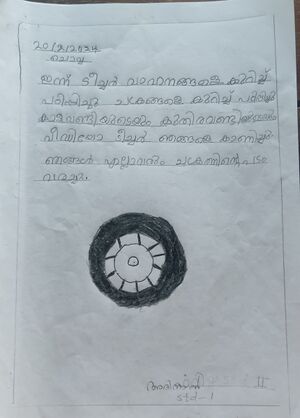 20/8/2024
ചൊവ്വ
ഇന്ന് ടീച്ചർ വാഹനങ്ങളെ കുറിച്ച്
പഠിപ്പിച്ചു ചക്രങ്ങളെ കുറിച്ച് പഠിപ്പിച്ചു
കാളവണ്ടിയുടെയും കുതിരവണ്ടിയുടെയും
വീഡിയോ ടീച്ചർ ഞങ്ങളെ കാണിച്ചു
ഞങ്ങൾ എല്ലാവരും ചക്രത്തിന്റെ പടം
വരച്ചു.
std-1